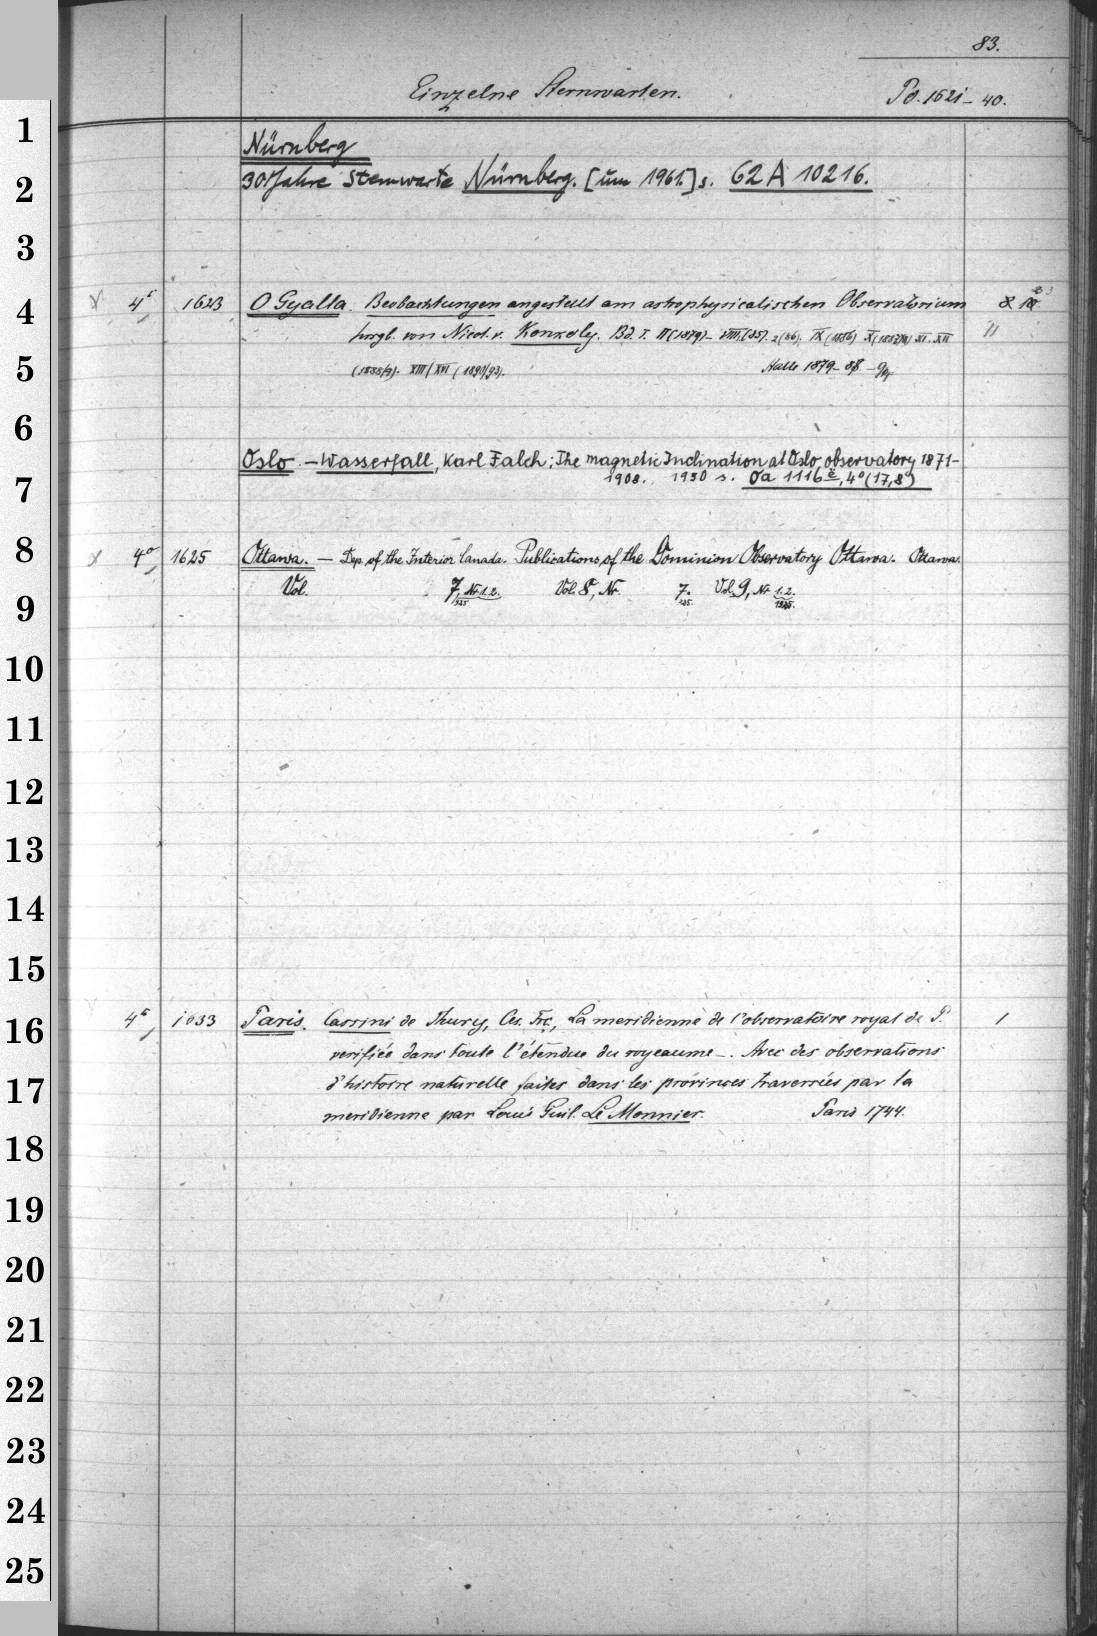 83.
Einzelne Sternwarten. Po. 1621-40.
1
Nürnberg
2 30 Jahre Sternwarte Nürnberg. [um 1961.] s. 62 A 10216.
3
4 4° 1623 O Gyalla. Beobachtungen angestellt am astrophysicalischen Observatorium 8
hrsgb. von Nicol. v. Konkoly. Bd. I. II (1879)- VIII,(85). 2(86). IX (1886) X (1887/8) XI. XII 11
5 (1888/9). XIII/XVI (1890/93). Halle 1879-88-
6
Oslo. - Wasserfall, Karl Falch; The magnetic Inclination at Oslo observatory 1871-
7 1908. 1930 s. Oa 1116, 4° (17,8)
8 4° 1625 Ottawa. — Dep. of the Interior Canada. Publications of the Dominion Observatory Ottawa. Ottawa.
Vol. 7, Nr. 1.2. Vol. 8, Nr. 7. Vol. 9, Nr. 1.2.
9 1925 1925.
10
11
12
13
14
15
16 4° 1633 Paris. Cassini de Thury, Ces. Frç., La meridienne de l'observatoire royal de P. 1
verifiée dans toute l'étendue du royeaume -. Avec des observations
17 d'histoire naturelle faites dans les provinces traversées par la
meridienne par Louis Guil. Le Monnier. Paris 1744.
18
19
20
21
22
23
24
25